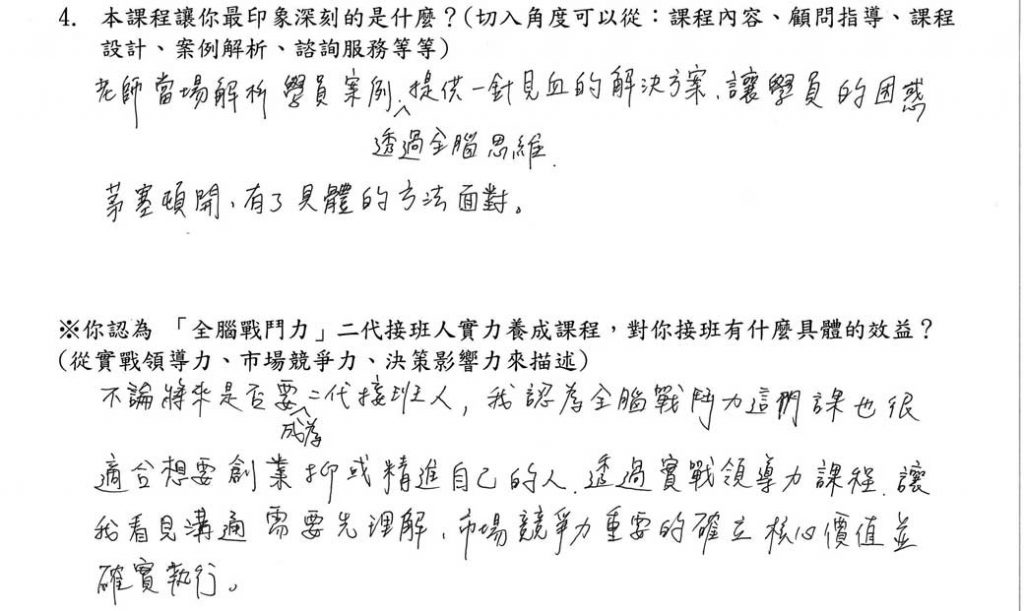 4. 本課程讓你最印象深刻的是什麼？(切入角度可以從：課程內容、顧問指導、課程
設計、案例解析、諮詢服務等等)
老師當場解析學員案例，提供一針見血的解決方案、讓學員的困惑
透過全腦思維.
茅塞頓開、有了具體的方法面對。
※你認為 「全腦戰鬥力」二代接班人實力養成課程，對你接班有什麼具體的效益？
(從實戰領導力、市場競爭力、決策影響力來描述)
不論將來是否要二代接班人，我認為全腦戰鬥力這門課也很
成為
適合想要創業抑或精進自己的人、透過實戰領導力課程、讓
我看見溝通需要先理解、市場競爭力重要的確立核心價值並
確實執行。